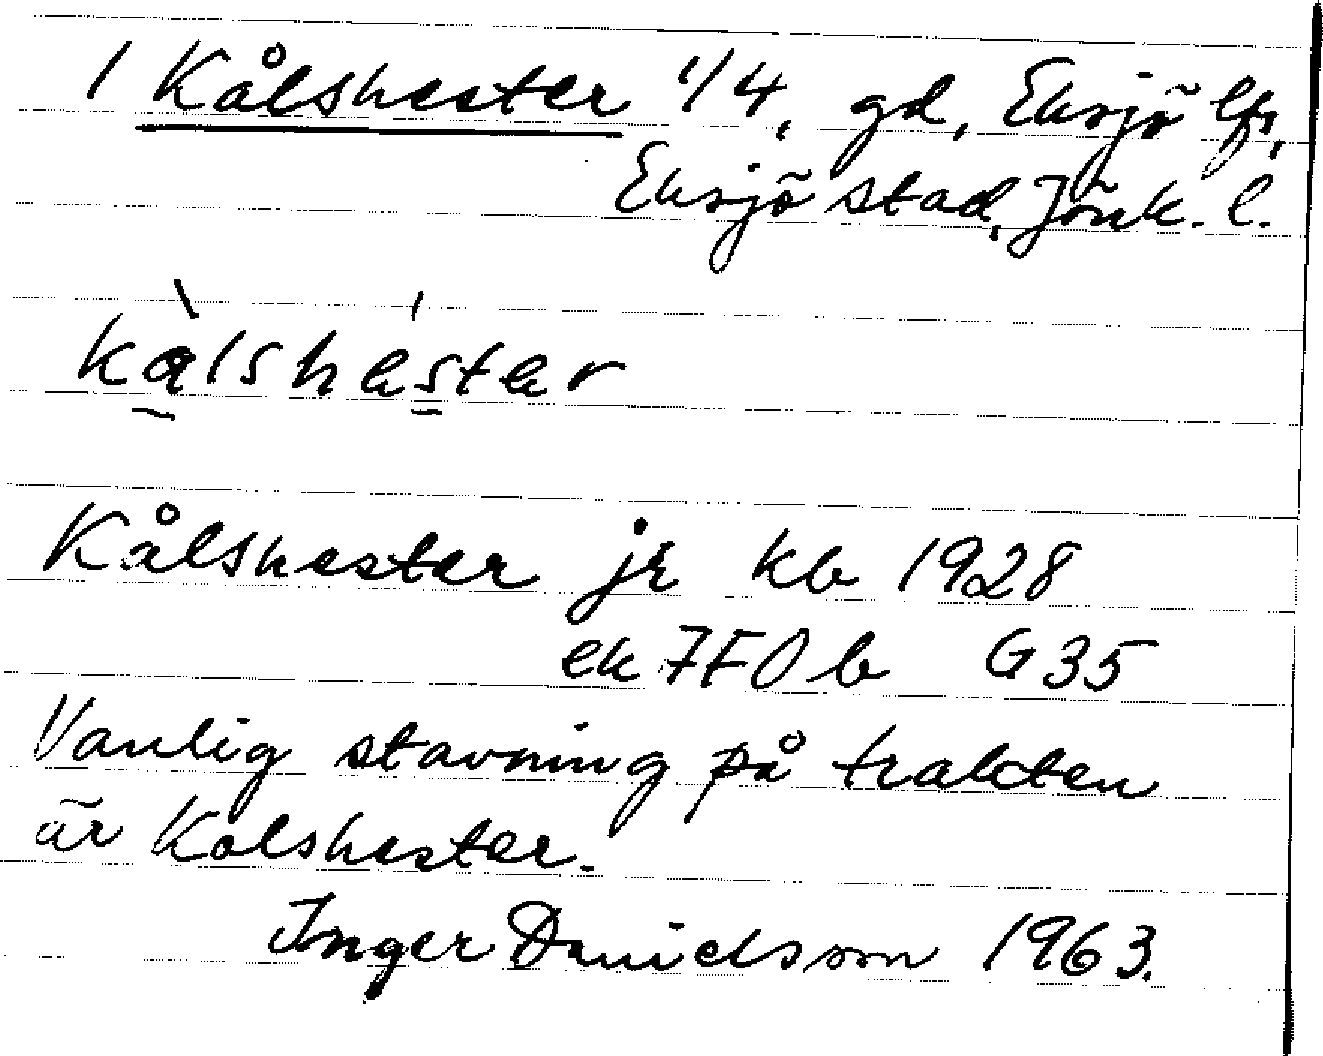 1 Kålshester 1/4, gd, Eksjö lfs,
Eksjö stad, Jönk. l.
kàlshéster
Kålshester jr kb 1928
ek 7F0b G35
Vanlig stavning på trakten
är Kolshester.
Inger Danielsson 1963.